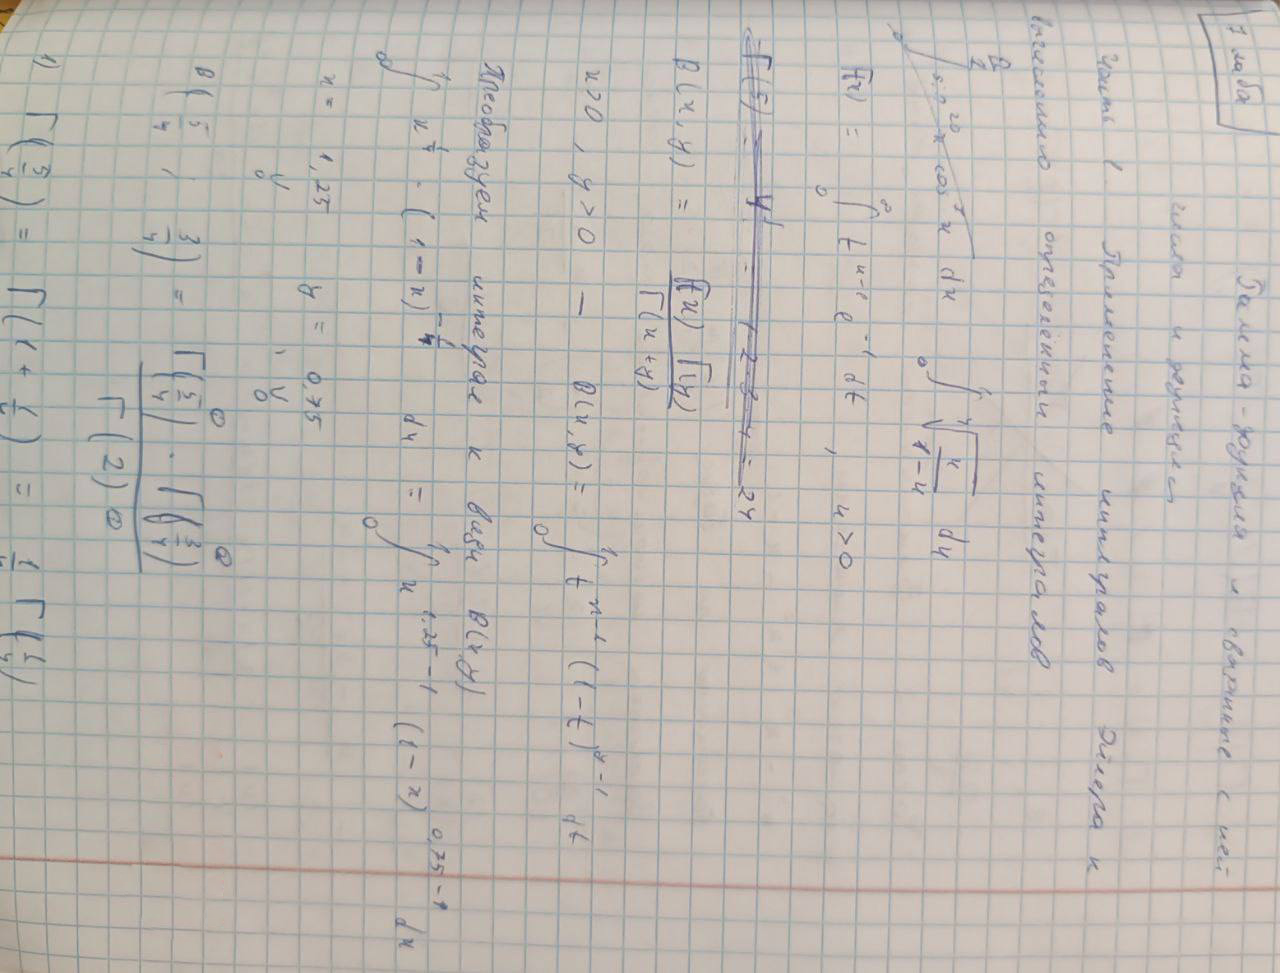 7 лаба
Гамма-функция и связанные с ней
числа и функции
Часть 1. Применение интегралов Эйлера к
вычислению определённых интегралов
∫₀^{π/2} sin²⁰ x cos⁷ x dx ∫₀¹ ⁴√(x/(1-x)) dx
Γ(x) = ∫₀^∞ t^{x-1} e^{-t} dt, x>0
= Γ(5) = 4! = 1·2·3·4 = 24
B(x,y) = Γ(x) Γ(y) / Γ(x+y)
x>0, y>0 — B(x,y) = ∫₀¹ t^{x-1} (1-t)^{y-1} dt
Преобразуем интеграл к виду B(x,y)
∫₀¹ x^{1/4} · (1-x)^{-1/4} dx = ∫₀¹ x^{1,25-1} (1-x)^{0,75-1} dx
x = 1,25 > 0, y = 0,75 > 0
B(5/4, 3/4) = Γ(5/4) · Γ(3/4) / Γ(2)
1) Γ(5/4) = Γ(1 + 1/4) = 1/4 Γ(1/4)